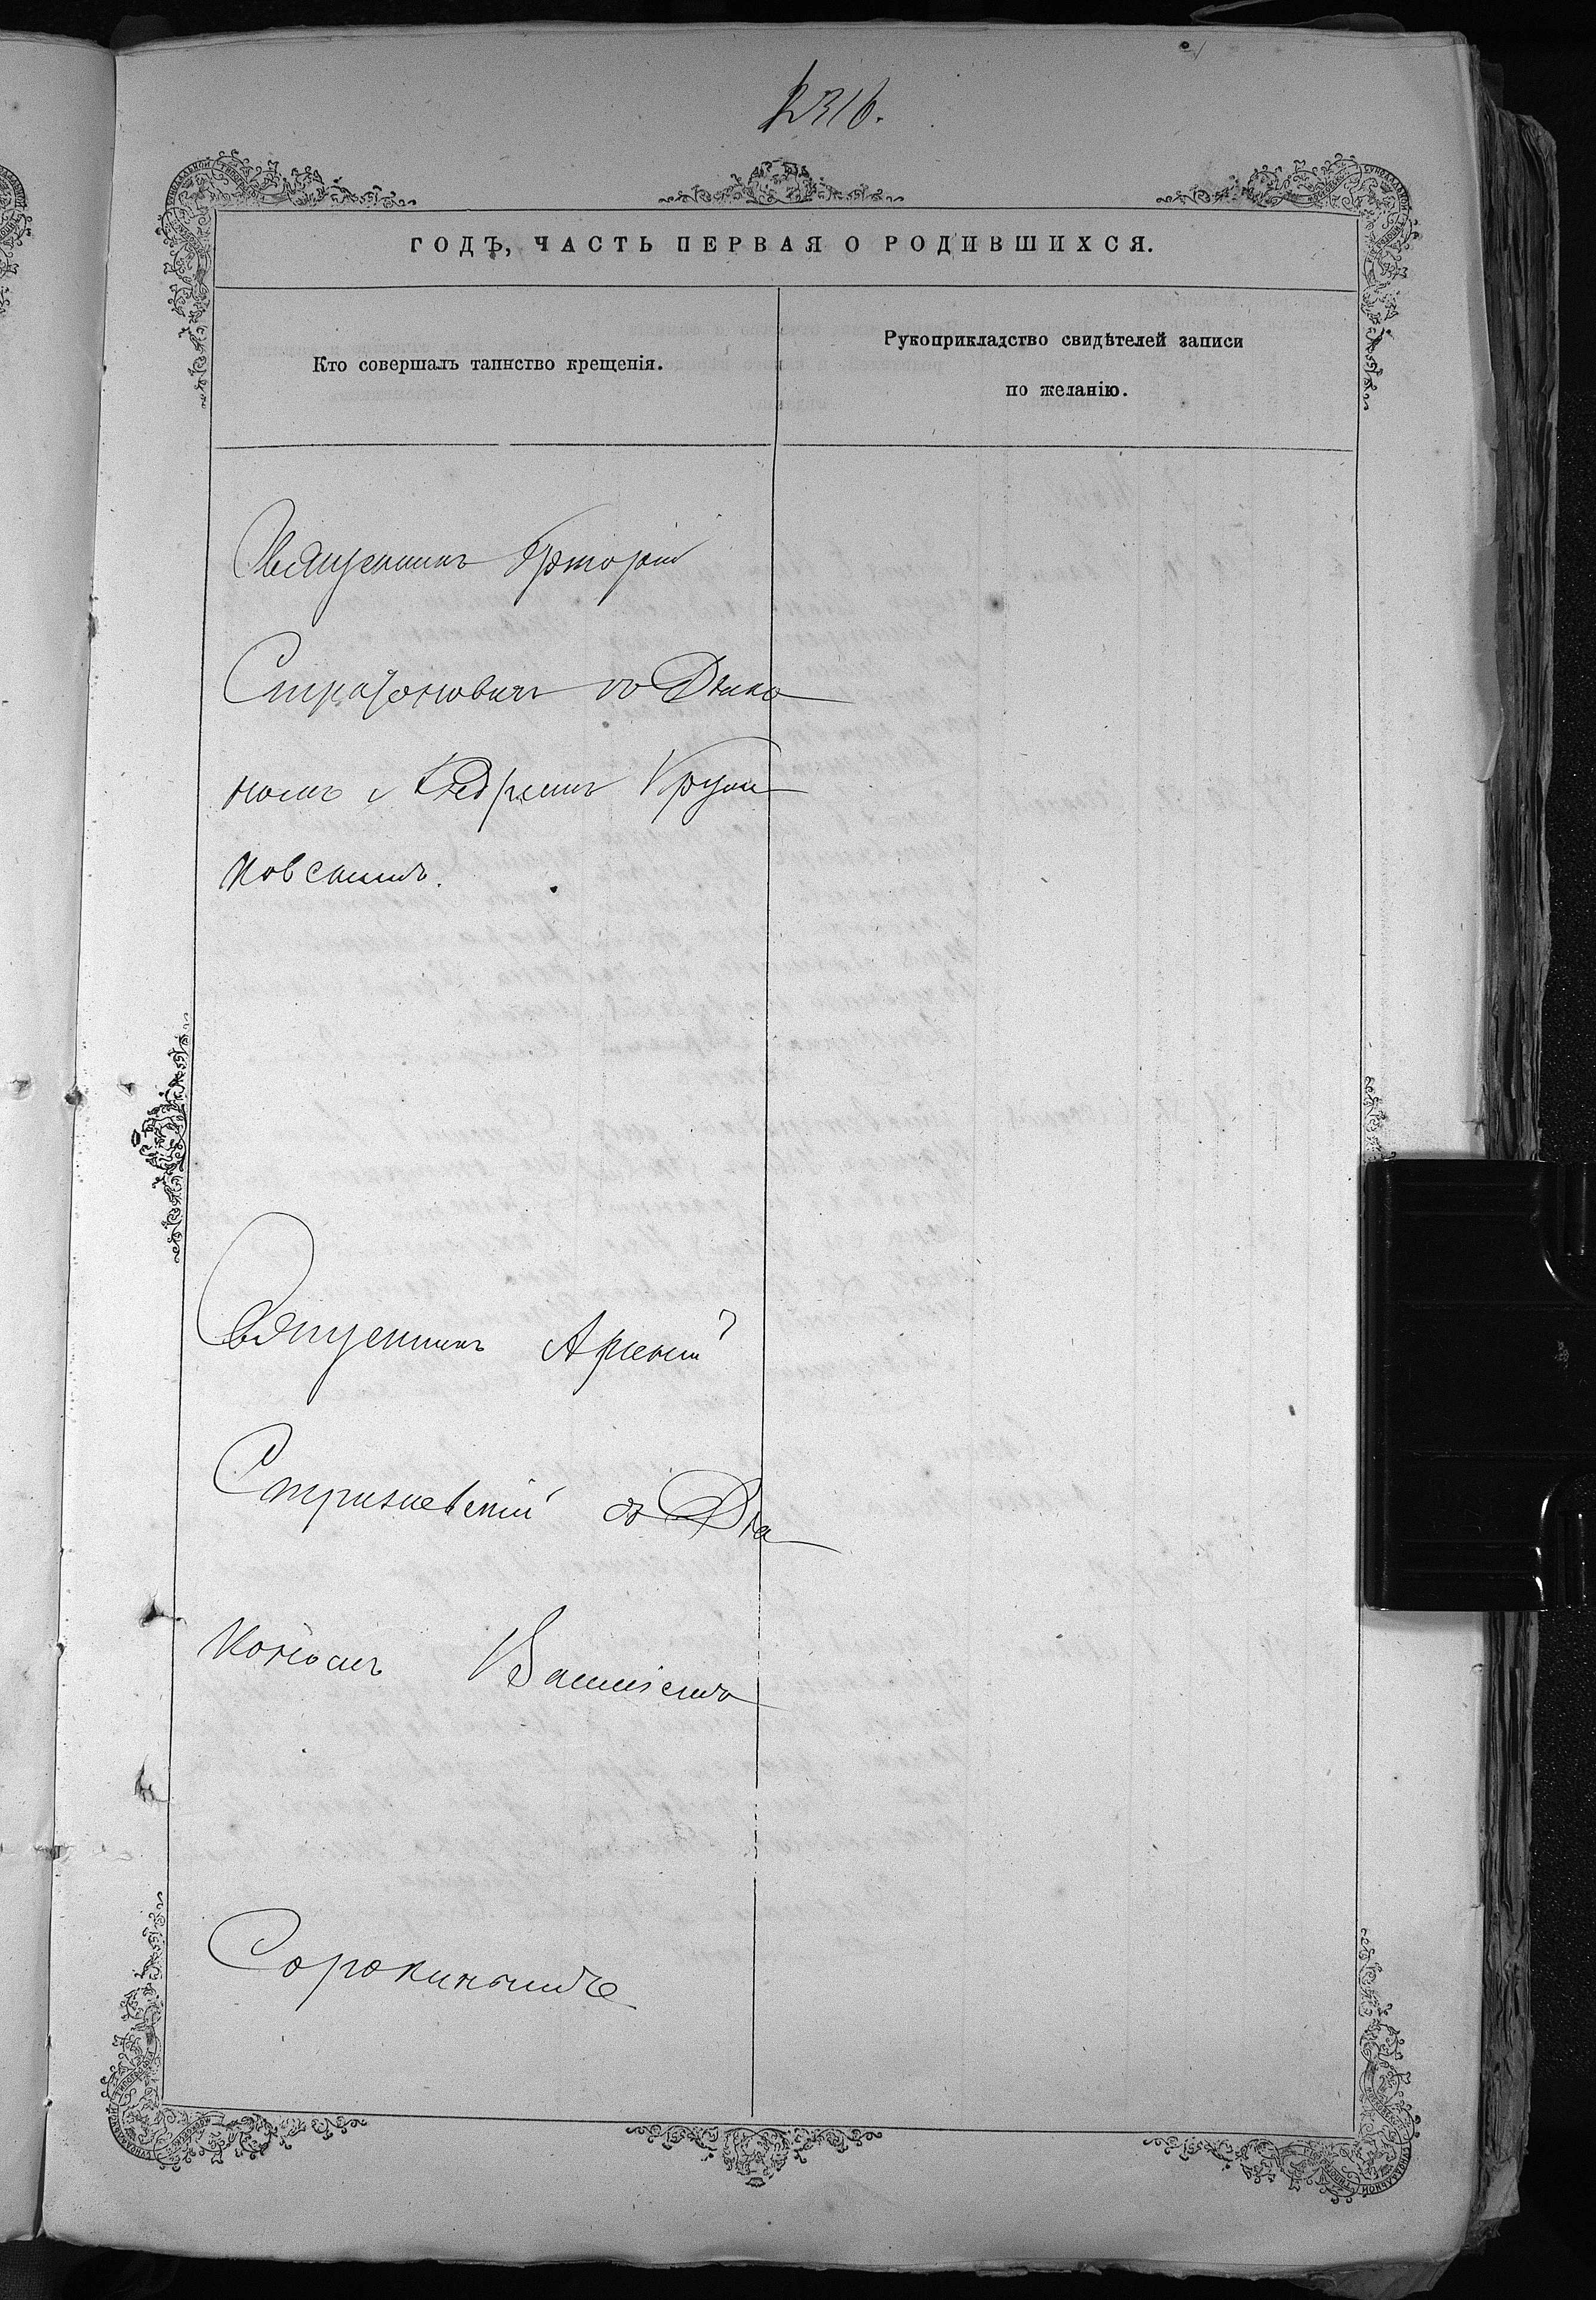 ГОДЪ, ЧАСТЬ ПЕРВАЯ О РОДИВШИХСЯ.
Кто совершалъ таинство крещенія.
Рукоприкладство свидѣтелей записи
по желанію.
Священникъ Григорій
Стратоновичъ съ Діако
номъ
ковскимъ.
Священникъ Арсеній
Стризневскій съ Діа
кономъ Василіемъ
Сорокинымъ